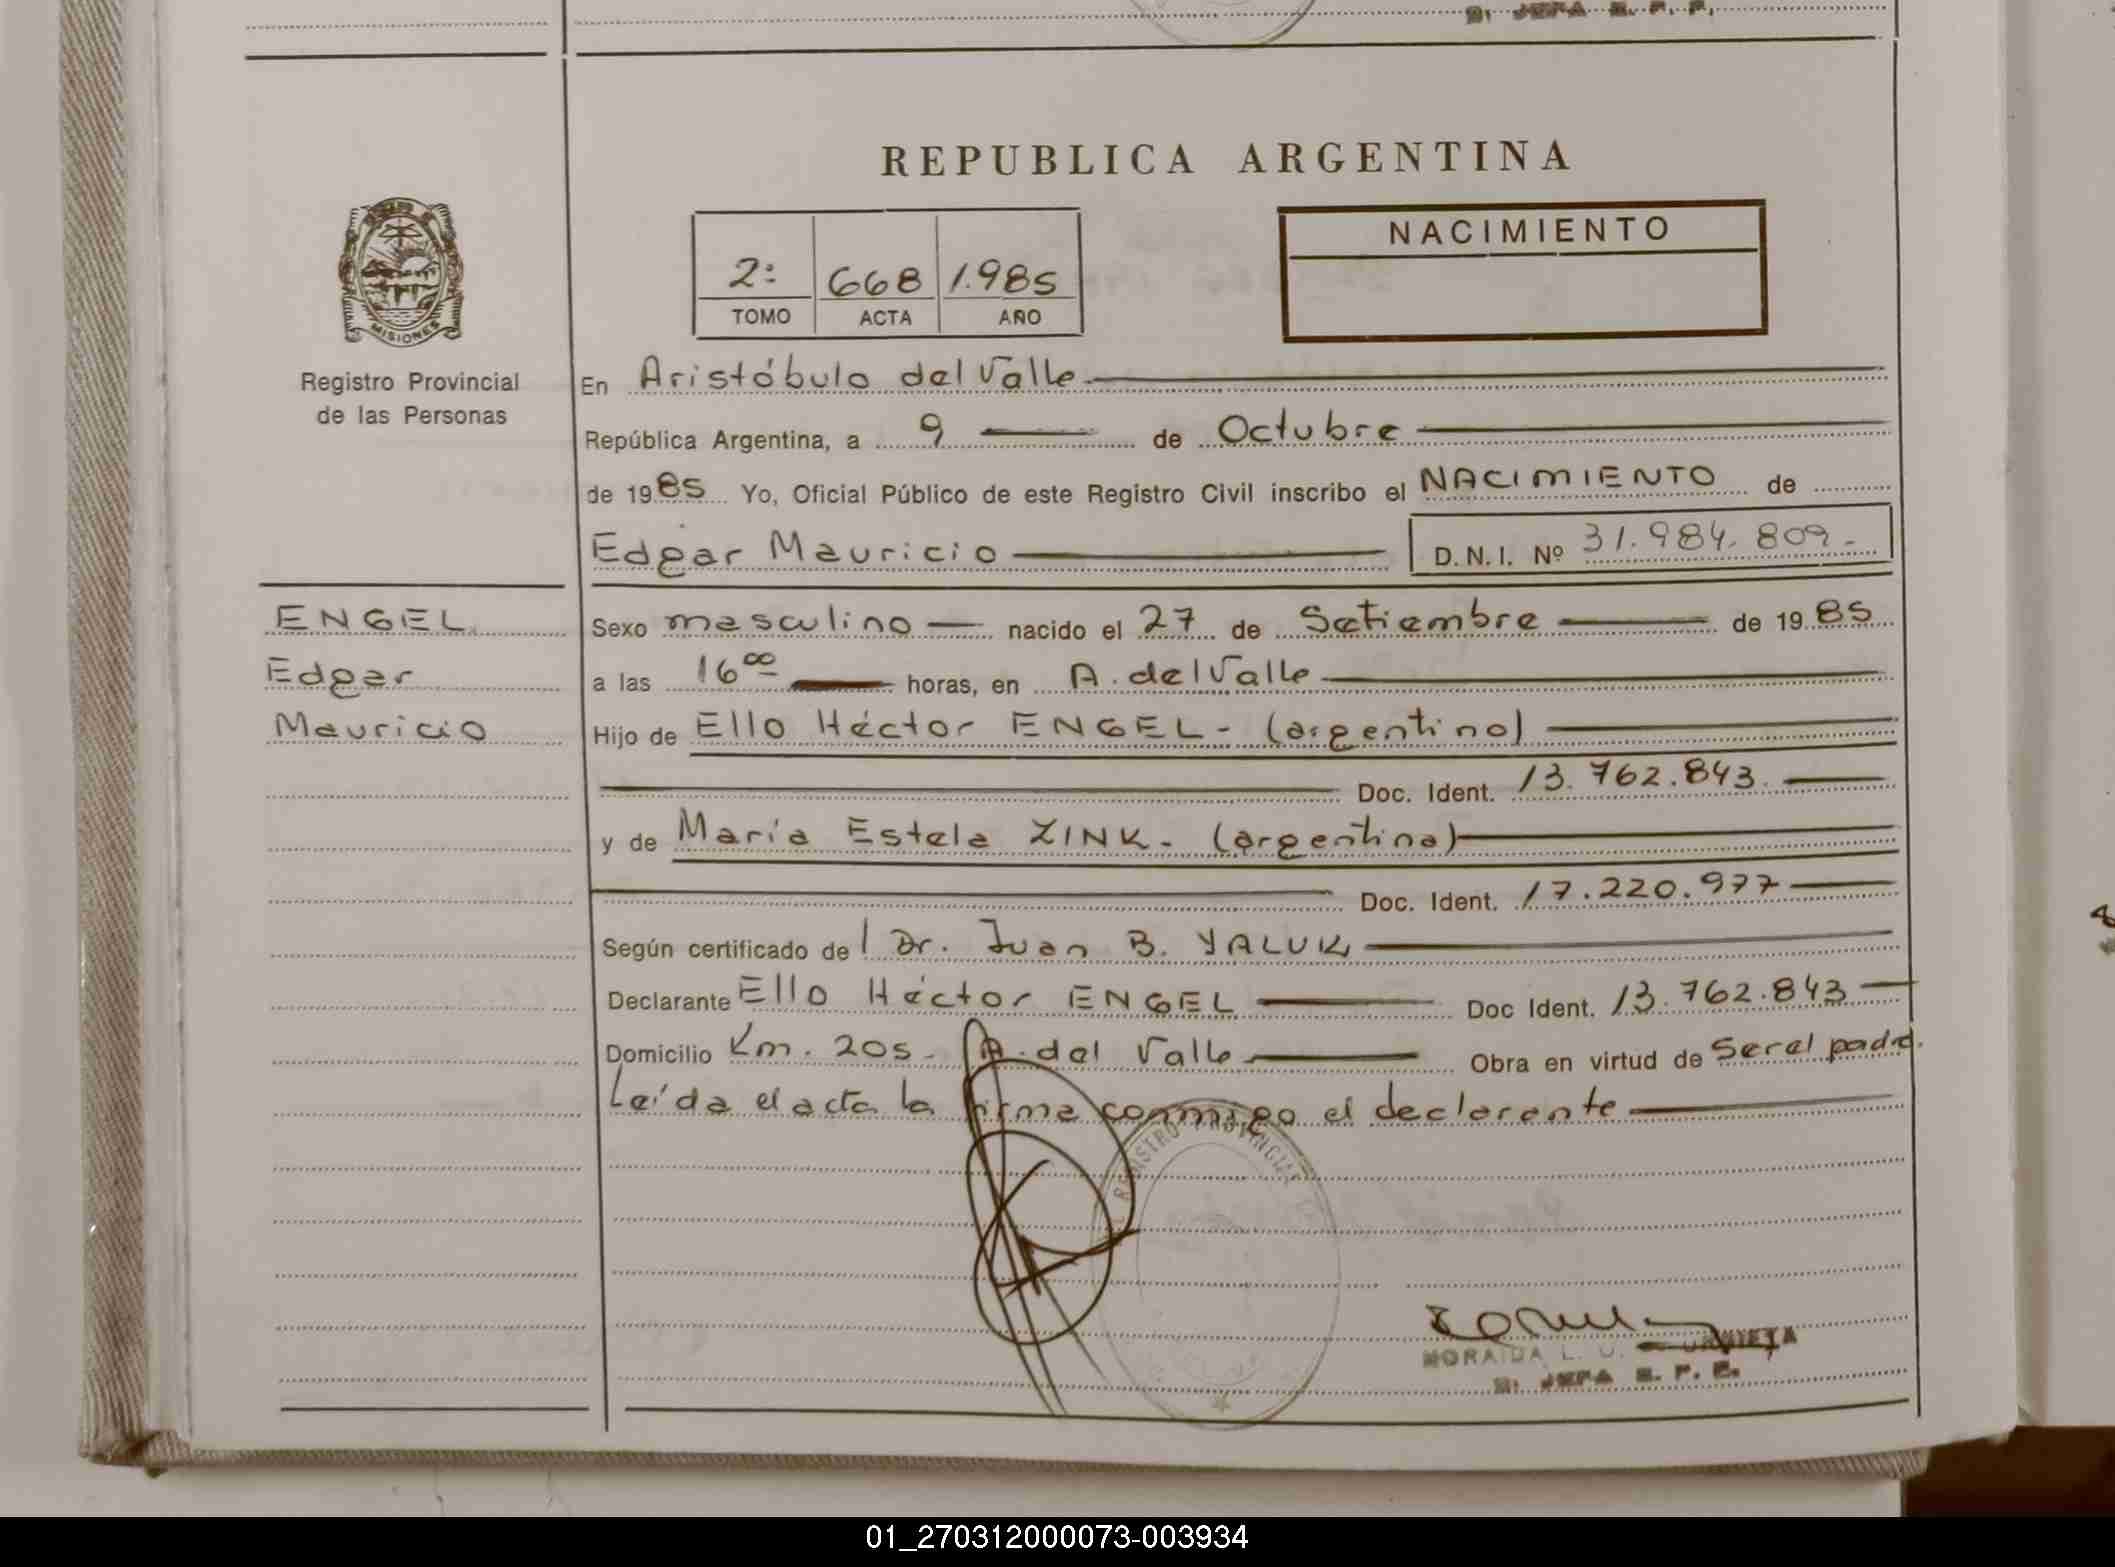 S. JEFA E. P. F.
REPUBLICA ARGENTINA
NACIMIENTO
2: 668 1.985
TOMO ACTA AÑO
MISIONES
Registro Provincial
de las Personas
En Aristóbulo del Valle
República Argentina, a 9 de Octubre
de 1985 Yo, Oficial Público de este Registro Civil inscribo el NACIMIENTO de
Edgar Mauricio D.N.I. Nº 31.984.809.-
ENGEL
Edgar
Mauricio
Sexo masculino nacido el 27 de Setiembre de 1985
a las 16 00 horas, en A. del Valle
Hijo de Ello Héctor ENGEL - (argentino)
Doc. Ident. 13.762.843.
y de María Estela ZINK - (argentina)
Doc. Ident. 17.220.977
Según certificado del Dr. Juan B. YALUK
Declarante Ello Héctor ENGEL Doc Ident. 13.762.843
Domicilio Km. 205 - A. del Valle Obra en virtud de Ser el padre.
Leída el acta la firma conmigo el declarante
REGISTRO PROVINCIAL
MORAIDA L. U.
JEFA
01_270312000073-003934